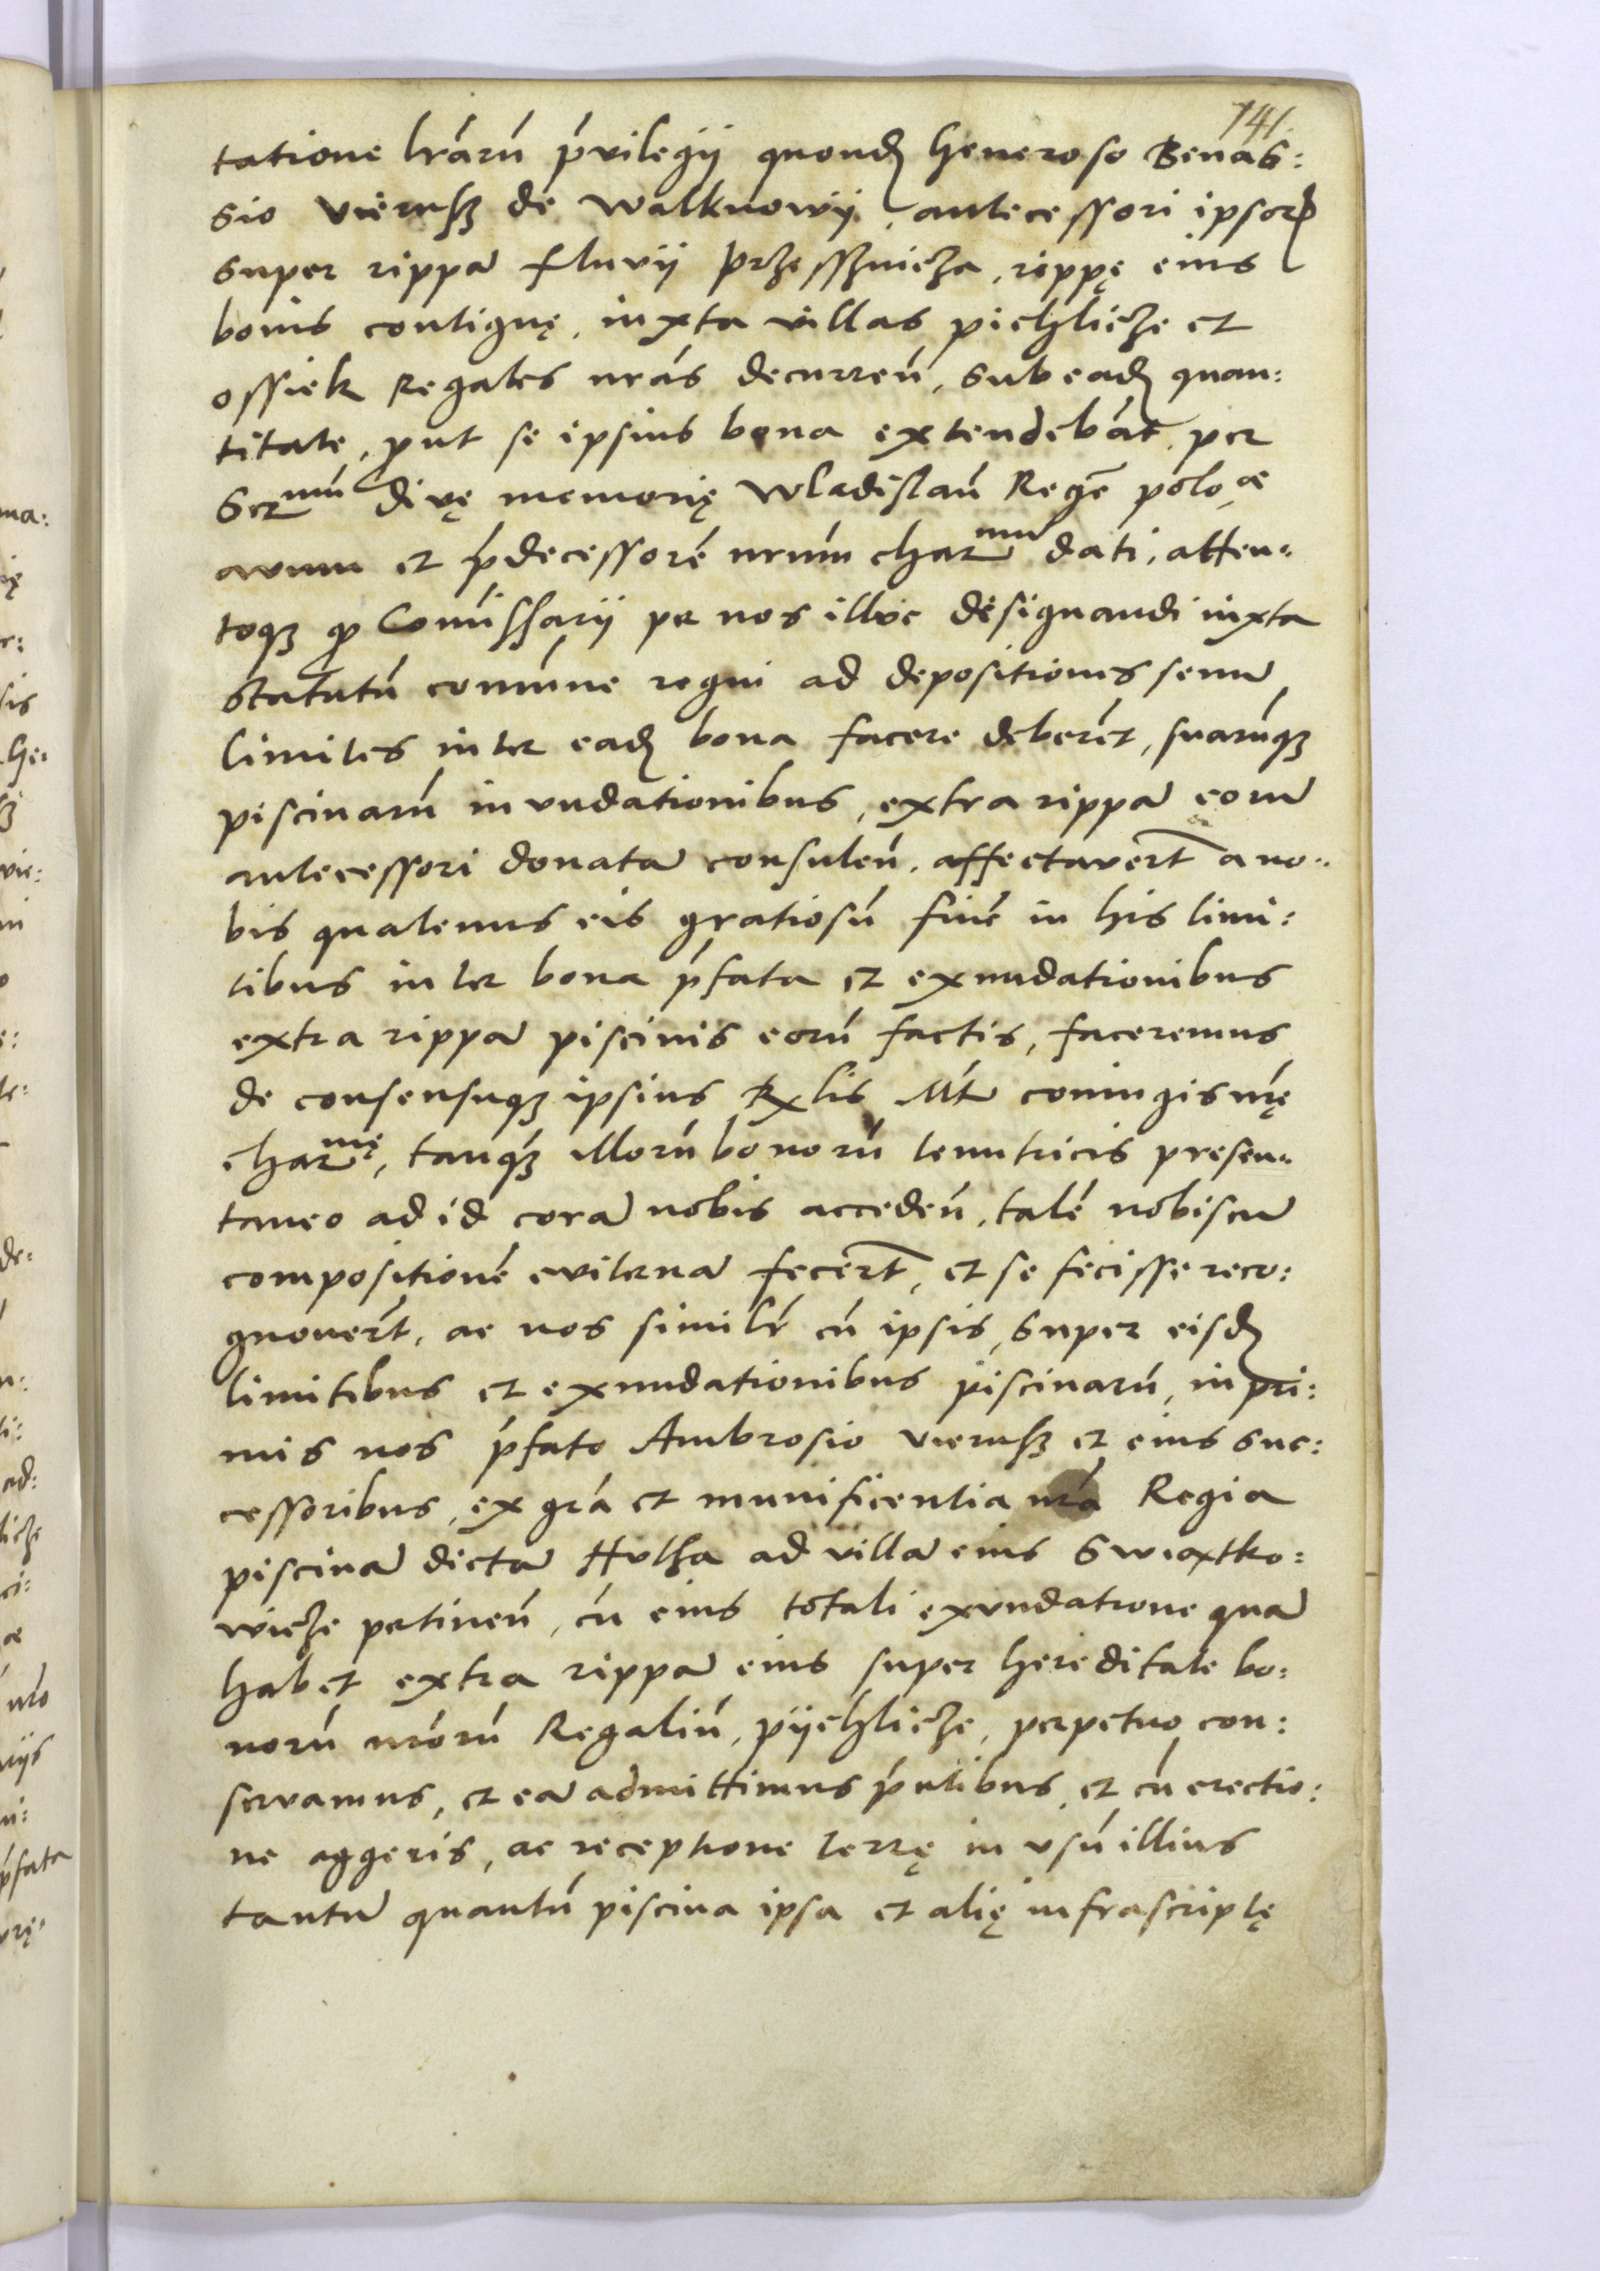 741
tatione lr̃arũ p̃uilegij quond generoso Benas:
sio vierusz de Walknowÿ, antecessori ipsor
super rippã fluvij Przesznicza, rippę eius
bonis contiguę, iuxta villas pichlicze et
ossiek Regales nr̃as decurreñ, sub ead quan:
titate, put se ipsius bona extendebãt, per
Ser̃mũ divę memorię Wladislaũ Regẽ poloæ
avum et p̃decessorẽ nr̃um charmũ dati, atten-
toq ꝙ Com̃issarij per nos illic designandi iuxta
statutũ com̃une regni ad depositiones senũ
limites inter ead bona facere deberẽt, suarũq
piscinarũ inundationibus, extra rippã eorũ
antecessori donatã consuleñ, affectaverũt a no-
bis quatenus eis gratiosũ finẽ in his limi:
tibus inter bona p̃fata et exundationibus
extra rippã piscinis eorũ factis, faceremus
de consensuq ipsius Rglis Mt̃ coniugis nr̃ę
charmę, tanq̃ illorũ bonorũ tenutricis presen-
taneo ad id corã nobis accedeñ, talẽ nobiscũ
compositionẽ eviternã fecerũt, et se fecisse reco:
gnoverũt, ac nos similr̃ cũ ipsis, super eisd
limitibus et exundationibus piscinarũ, inpri:
mis nos p̃fato Ambrosio vierusz et eius suc:
cessoribus, ex gr̃a et munificentia nr̃a Regia
piscinã dictã Hutha ad villã eius Swiatko:
wicze pertineñ, cũ eius totali exundatione quã
habet extra rippã eius super hereditate bo:
norũ nr̃orũ Regaliũ, pÿchlicze, perpetuo con:
servamus, et eã admittimus p̃ntibus, et cũ erectio:
ne aggeris, ac receptione terrę in usũ illius
tantũ quantũ piscina ipsa et alię infrascriptę